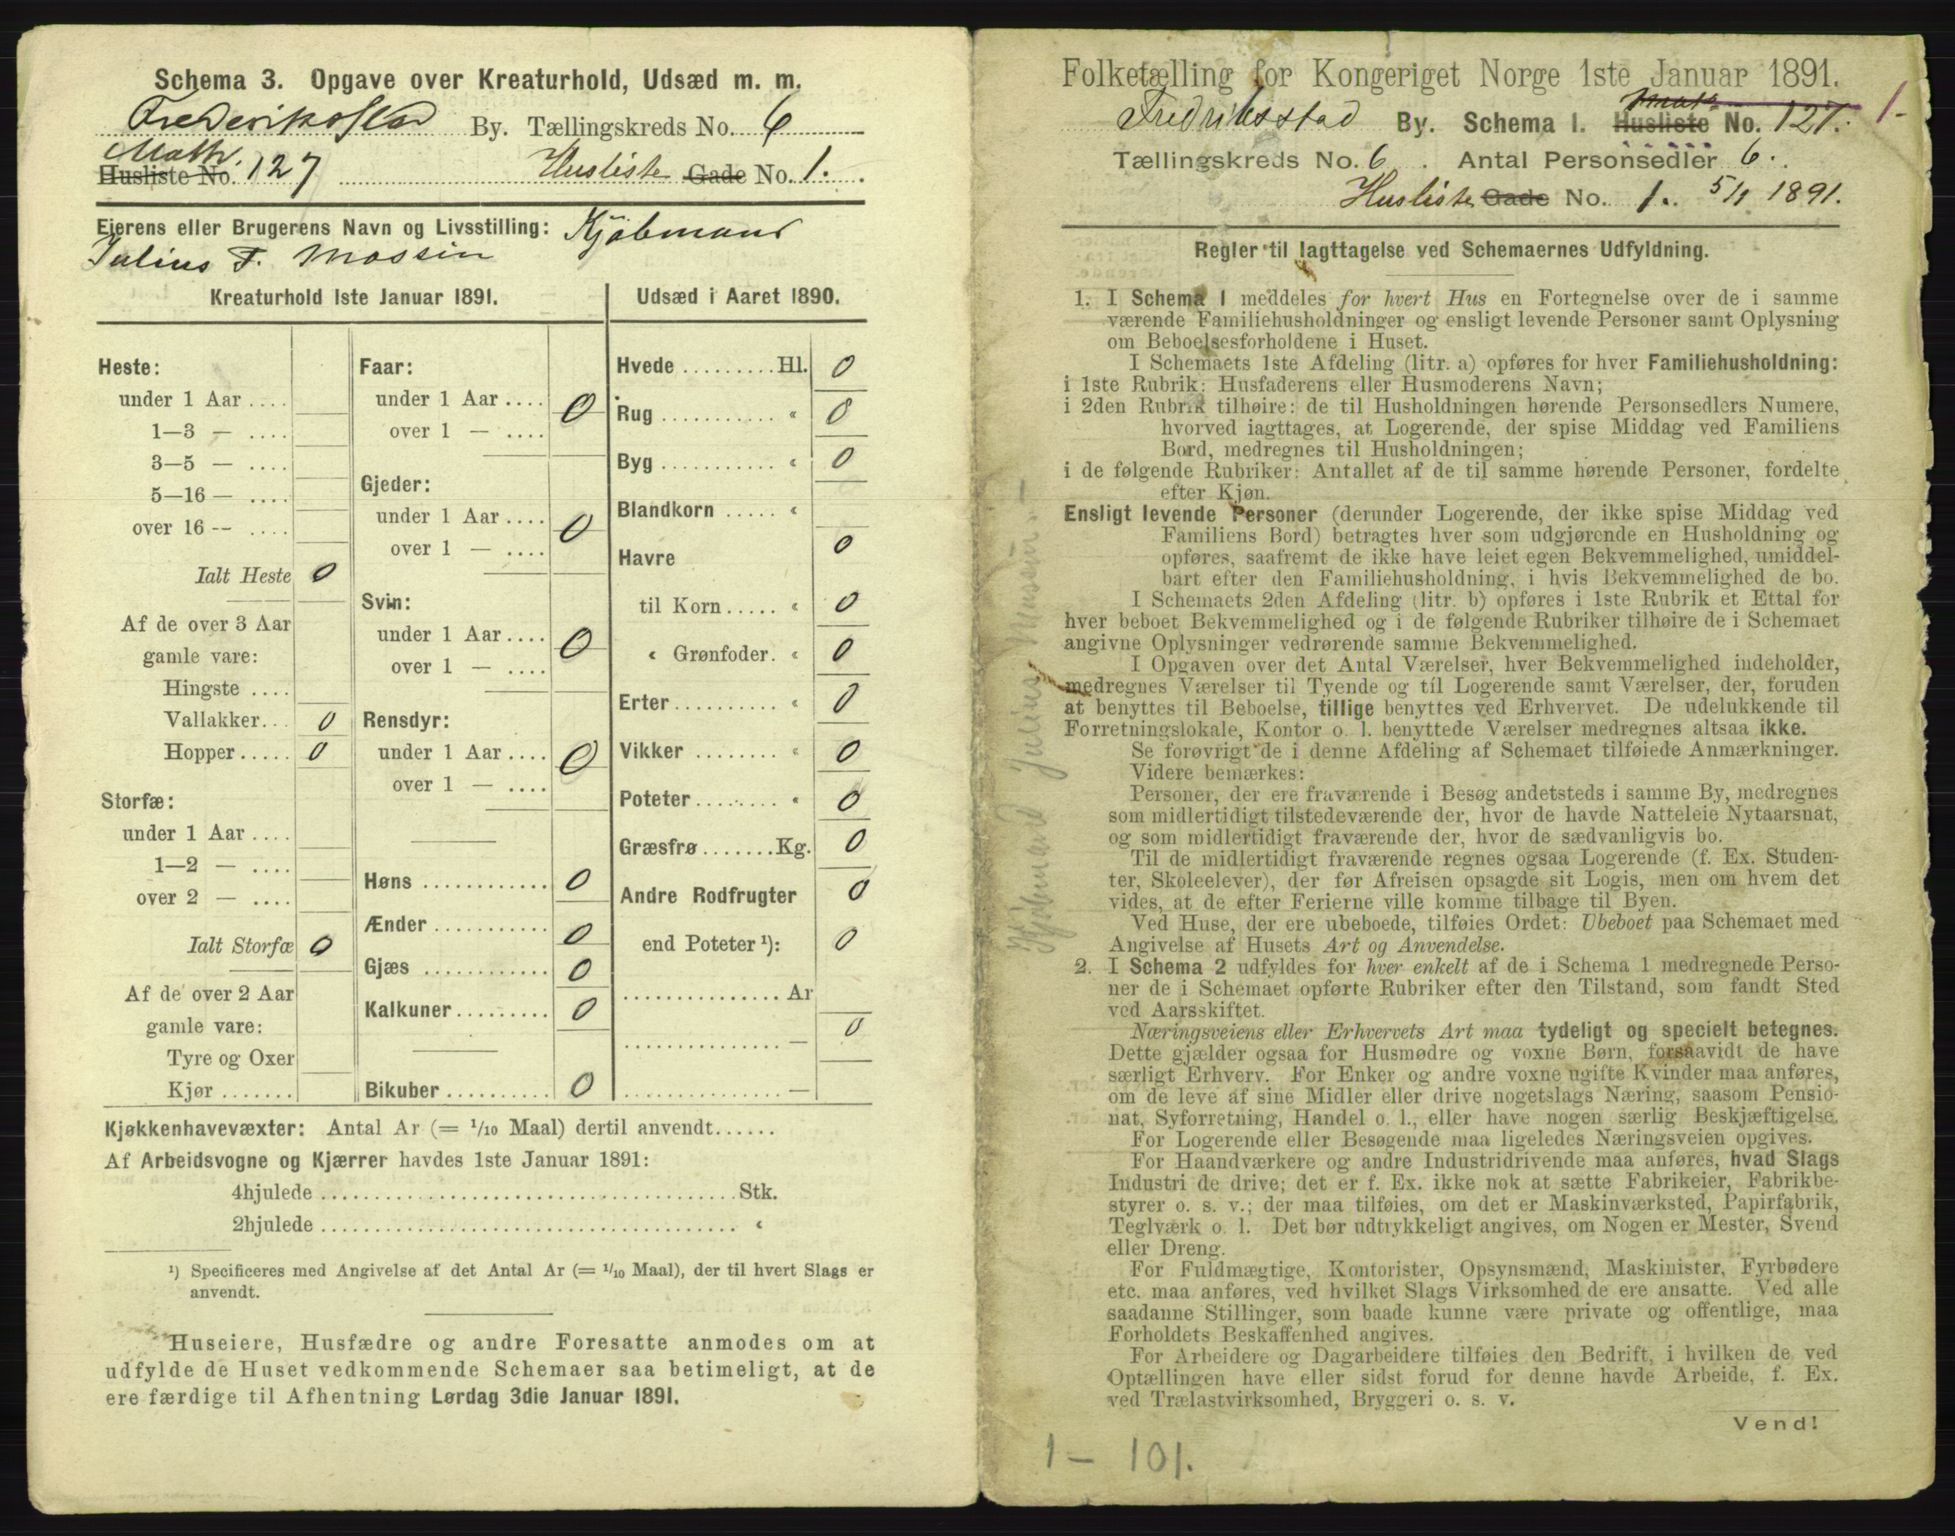 Schema 3. Opgave over Kreaturhold, Udsæd m. m.
Frederiksstad By. Tællingskreds No. 6
Math.
Husliste No. 127 Husliste Gade No. 1.
Eierens eller Brugerens Navn og Livsstilling: Kjøbmand
Julius F. Mossin
Kreaturhold 1ste Januar 1891.
Heste:
under 1 Aar ....
1—3 — ....
3—5 — ....
5—16 — ....
over 16 -- ....
Ialt Heste 0
Af de over 3 Aar
gamle vare:
Hingste ....
Vallakker... 0
Hopper..... 0
Storfæ:
under 1 Aar ....
1—2 — ....
over 2 — ....
Ialt Storfæ 0
Af de over 2 Aar
gamle vare:
Tyre og Oxer
Kjør .......
Faar:
under 1 Aar ....
over 1 — .... 0
Gjeder:
under 1 Aar ....
over 1 — .... 0
Svin:
under 1 Aar ....
over 1 — .... 0
Rensdyr:
under 1 Aar ....
over 1 — .... 0
Høns ............ 0
Ænder ........... 0
Gjæs ............ 0
Kalkuner ......... 0
Bikuber .......... 0
Udsæd i Aaret 1890.
Hvede ......... Hl. 0
Rug ............ « 0
Byg ............ « 0
Blandkorn ..... «
Havre 0
til Korn ..... « 0
« Grønfoder. « 0
Erter .......... « 0
Vikker ........ « 0
Poteter ........ « 0
Græsfrø ....... Kg. 0
Andre Rodfrugter 0
end Poteter ¹): 0
............... Ar
............... — 0
............... —
Kjøkkenhavevæxter: Antal Ar (= 1/10 Maal) dertil anvendt......
Af Arbeidsvogne og Kjærrer havdes 1ste Januar 1891:
4hjulede ....................................... Stk.
2hjulede ....................................... «
¹) Specificeres med Angivelse af det Antal Ar (= 1/10 Maal), der til hvert Slags er
anvendt.
Huseiere, Husfædre og andre Foresatte anmodes om at
udfylde de Huset vedkommende Schemaer saa betimeligt, at de
ere færdige til Afhentning Lørdag 3die Januar 1891.
Folketælling for Kongeriget Norge 1ste Januar 1891.
Math 1-
Fredriksstad By. Schema 1. Husliste No. 127.
Tællingskreds No. 6. Antal Personsedler 6.
Husliste Gade No. 1. 5/1 1891.
Regler til Iagttagelse ved Schemaernes Udfyldning.
1. I Schema 1 meddeles for hvert Hus en Fortegnelse over de i samme
værende Familiehusholdninger og ensligt levende Personer samt Oplysning
om Beboelsesforholdene i Huset.
I Schemaets 1ste Afdeling (litr. a) opføres for hver Familiehusholdning:
i 1ste Rubrik: Husfaderens eller Husmoderens Navn;
i 2den Rubrik tilhøire: de til Husholdningen hørende Personsedlers Numere,
hvorved iagttages, at Logerende, der spise Middag ved Familiens
Bord, medregnes til Husholdningen;
i de følgende Rubriker: Antallet af de til samme hørende Personer, fordelte
efter Kjøn.
Ensligt levende Personer (derunder Logerende, der ikke spise Middag ved
Familiens Bord) betragtes hver som udgjørende en Husholdning og
opføres, saafremt de ikke have leiet egen Bekvemmelighed, umiddel-
bart efter den Familiehusholdning, i hvis Bekvemmelighed de bo.
I Schemaets 2den Afdeling (litr. b) opføres i 1ste Rubrik et Ettal for
hver beboet Bekvemmelighed og i de følgende Rubriker tilhøire de i Schemaet
angivne Oplysninger vedrørende samme Bekvemmelighed.
I Opgaven over det Antal Værelser, hver Bekvemmelighed indeholder,
medregnes Værelser til Tyende og til Logerende samt Værelser, der, foruden
at benyttes til Beboelse, tillige benyttes ved Erhvervet. De udelukkende til
Forretningslokale, Kontor o. l. benyttede Værelser medregnes altsaa ikke.
Se forøvrigt de i denne Afdeling af Schemaet tilføiede Anmærkninger.
Videre bemærkes:
Personer, der ere fraværende i Besøg andetsteds i samme By, medregnes
som midlertidigt tilstedeværende der, hvor de havde Natteleie Nytaarsnat,
og som midlertidigt fraværende der, hvor de sædvanligvis bo.
Til de midlertidigt fraværende regnes ogsaa Logerende (f. Ex. Studen-
ter, Skoleelever), der før Afreisen opsagde sit Logis, men om hvem det
vides, at de efter Ferierne ville komme tilbage til Byen.
Ved Huse, der ere ubeboede, tilføies Ordet: Ubeboet paa Schemaet med
Angivelse af Husets Art og Anvendelse.
2. I Schema 2 udfyldes for hver enkelt af de i Schema 1 medregnede Perso-
ner de i Schemaet opførte Rubriker efter den Tilstand, som fandt Sted
ved Aarsskiftet.
Næringsveiens eller Erhvervets Art maa tydeligt og specielt betegnes.
Dette gjælder ogsaa for Husmødre og voxne Børn, forsaavidt de have
særligt Erhverv. For Enker og andre voxne ugifte Kvinder maa anføres,
om de leve af sine Midler eller drive nogetslags Næring, saasom Pensio-
nat, Syforretning, Handel o. l., eller have nogen særlig Beskjæftigelse.
For Logerende eller Besøgende maa ligeledes Næringsveien opgives.
For Haandværkere og andre Industridrivende maa anføres, hvad Slags
Industri de drive; det er f. Ex. ikke nok at sætte Fabrikeier, Fabrikbe-
styrer o. s. v.; der maa tilføies, om det er Maskinværksted, Papirfabrik,
Teglværk o. l. Det bør udtrykkeligt angives, om Nogen er Mester, Svend
eller Dreng.
For Fuldmægtige, Kontorister, Opsynsmænd, Maskinister, Fyrbødere
etc. maa anføres, ved hvilket Slags Virksomhed de ere ansatte. Ved alle
saadanne Stillinger, som baade kunne være private og offentlige, maa
Forholdets Beskaffenhed angives.
For Arbeidere og Dagarbeidere tilføies den Bedrift, i hvilken de ved
Optællingen have eller sidst forud for denne havde Arbeide, f. Ex.
ved Trælastvirksomhed, Bryggeri o. s. v.
Vend!
Kjøbmand Julius Mossin —
1 — 101.